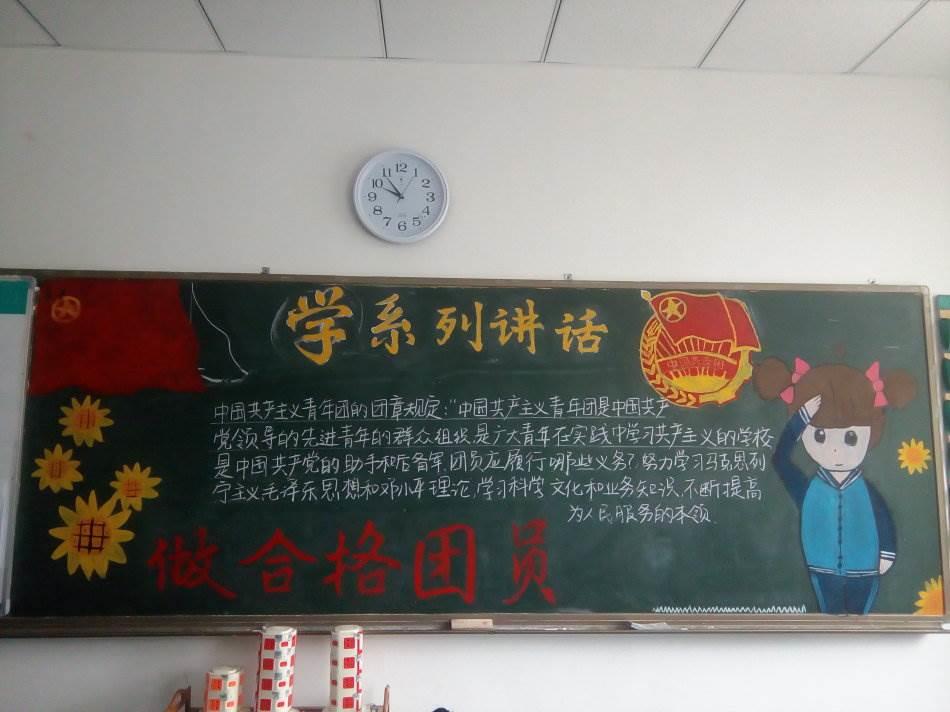 12
1
2
3
4
5
6
7
8
9
10
11
学系列讲话
中国共青团
中国共产主义青年团的团章规定:"中国共产主义青年团是中国共产
党领导的先进青年的群众组织,是广大青年在实践中学习共产主义的学校
是中国共产党的助手和后备军,团员应履行哪些义务?努力学习马克思列
宁主义毛泽东思想和邓小平理论,学习科学文化和业务知识,不断提高
为人民服务的本领.
做合格团员